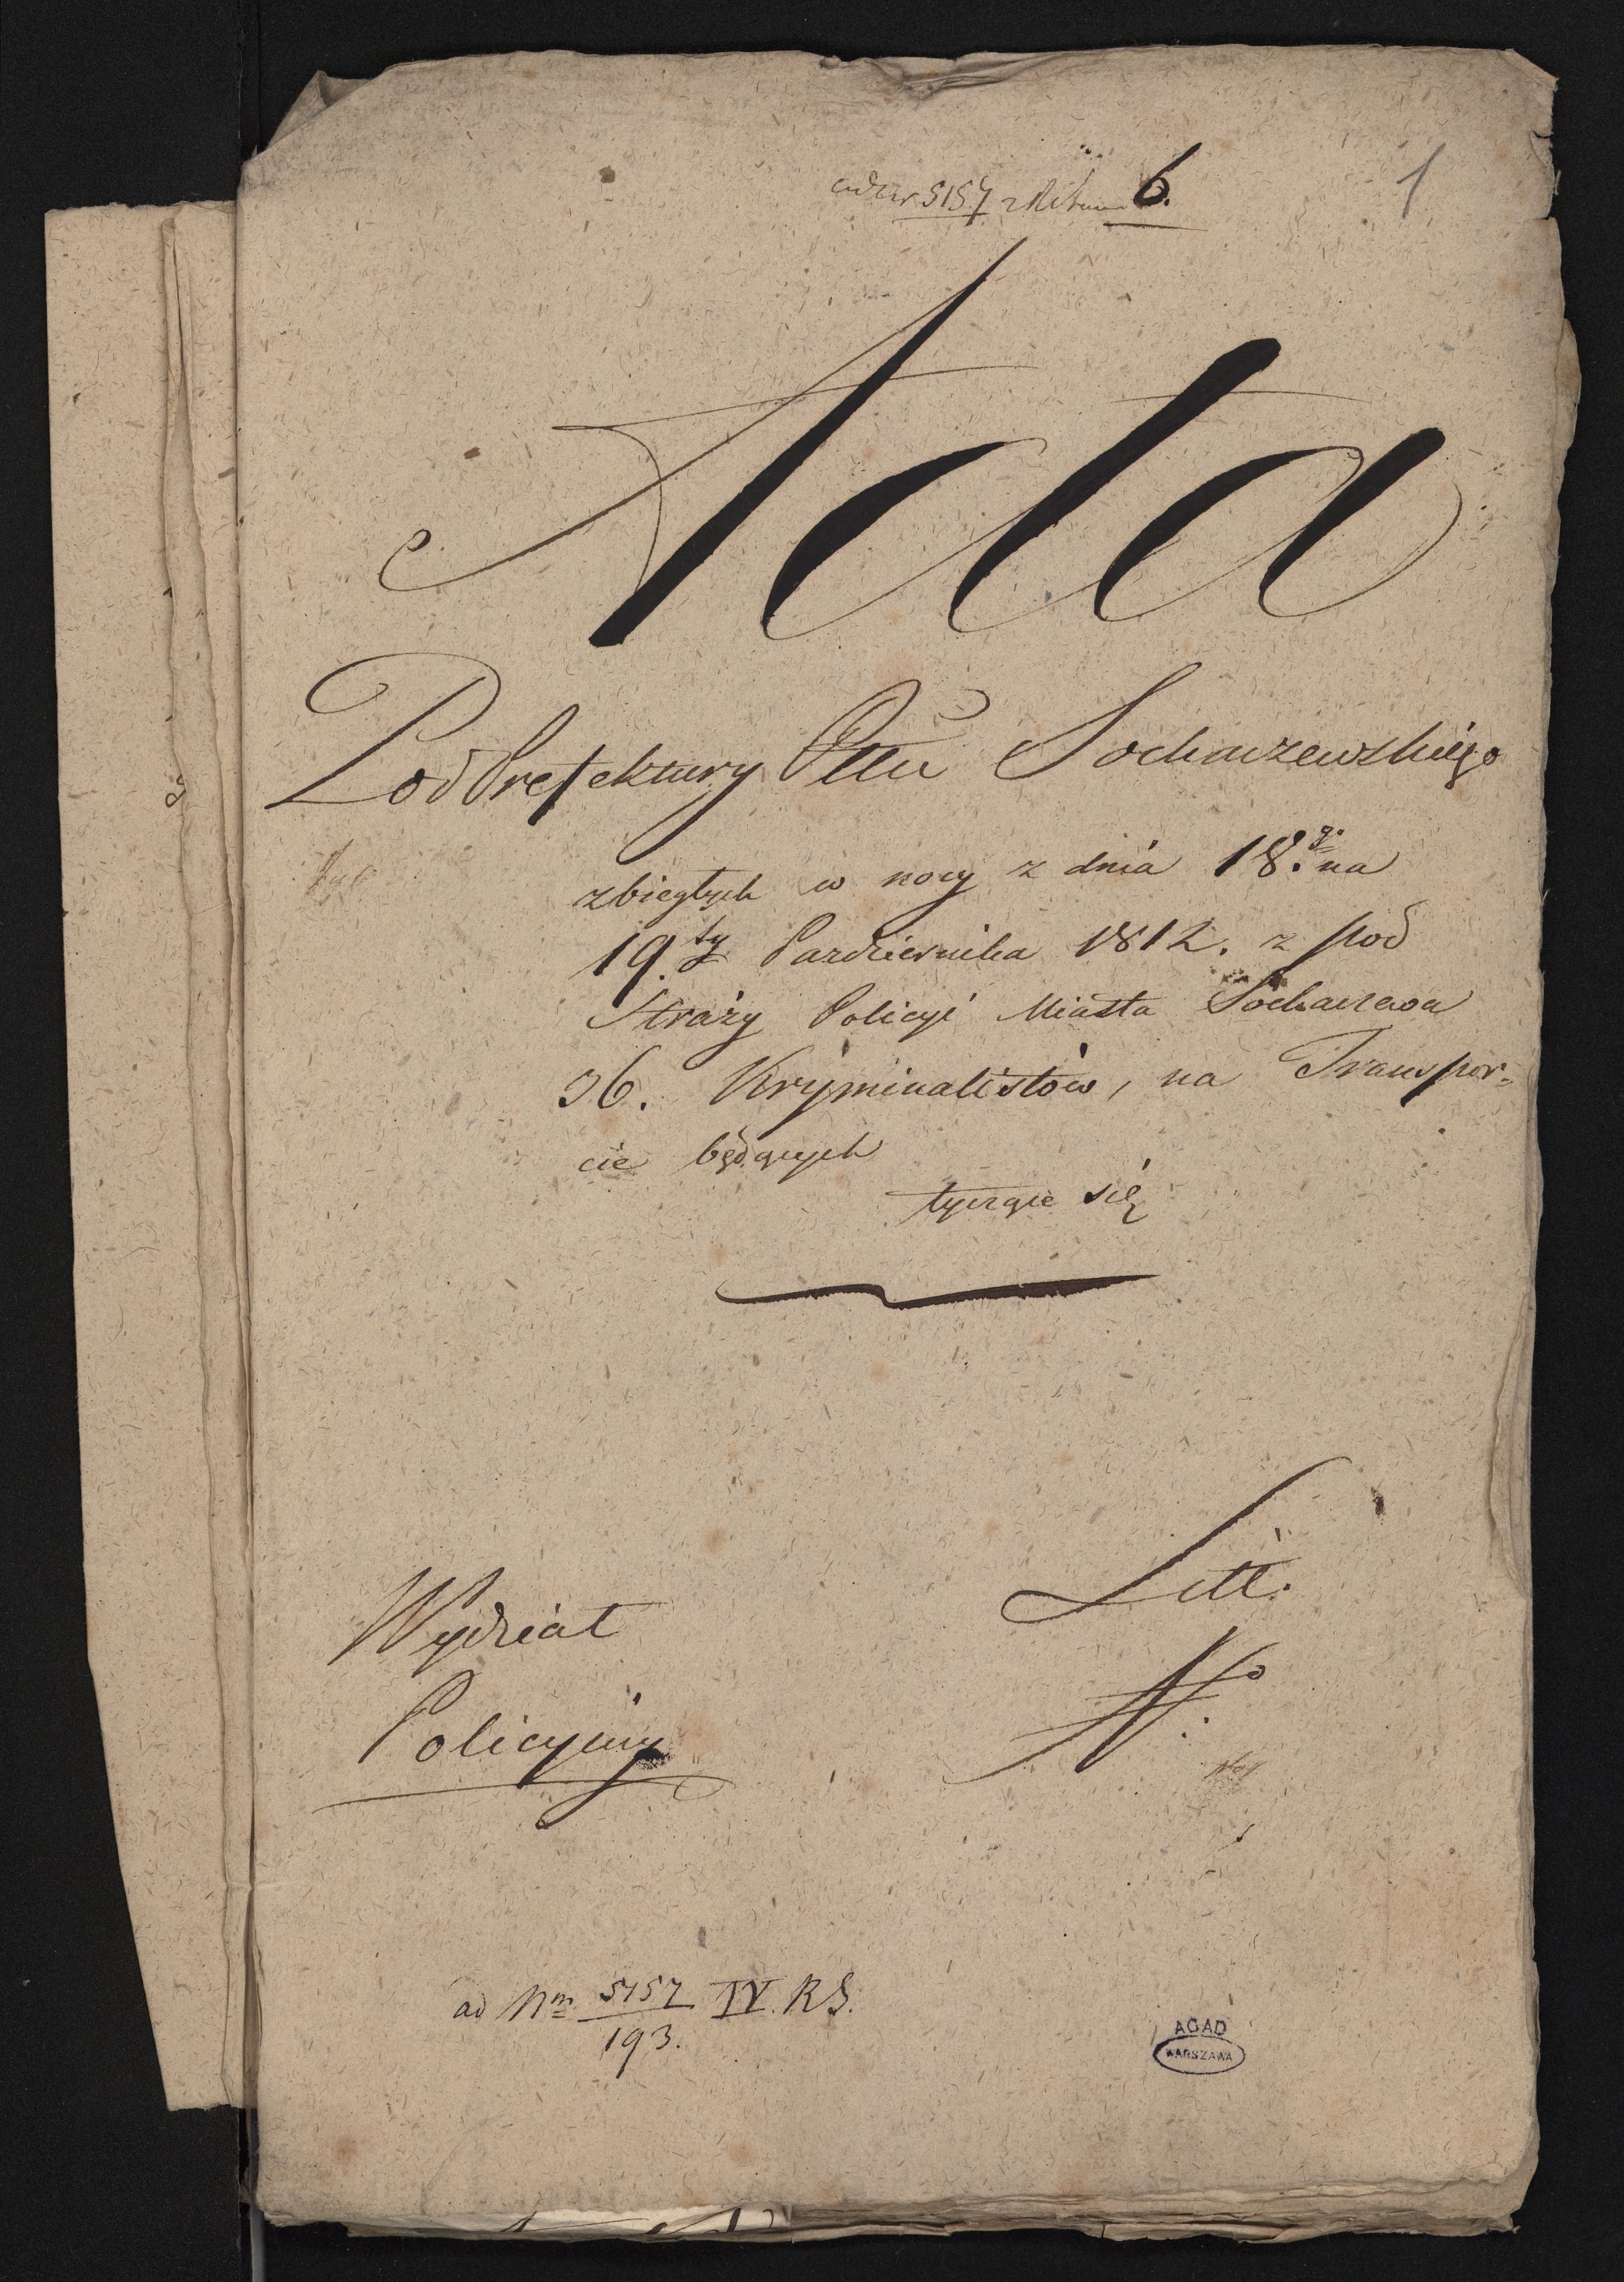 5157 6.
1
Acta
PodPrefektury Pttu Sochaczewskiego
zbiegłych w nocy z dnia 18.go na
19.ty Pazdziernika 1812. z pod
Straży Policyi Miasta Sochaczewa
36. Kryminalistów, na Transpor=
cie będących
tyczące się
Wydział
Policyiny
Litt.
No.
ad Nrm 5157 IV. RS.
193.
AGAD
WARSZAWA